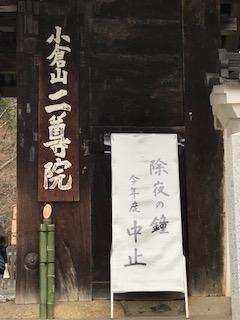 小倉山
二尊院
除夜の鐘
今年度
中止